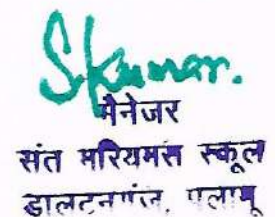 S. Kumar.
मैनेजर
संत मरियमस स्कूल
डालटनगंज, पलामू